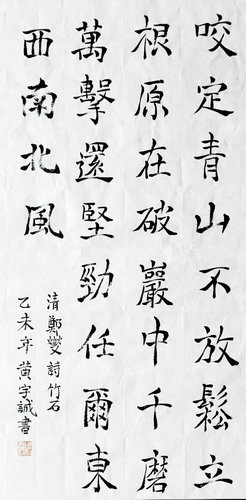 咬定青山不放鬆立
根原在破巖中千磨
萬擊還堅勁任爾東
西南北風
清鄭燮詩竹石
乙未年黃宇誠書